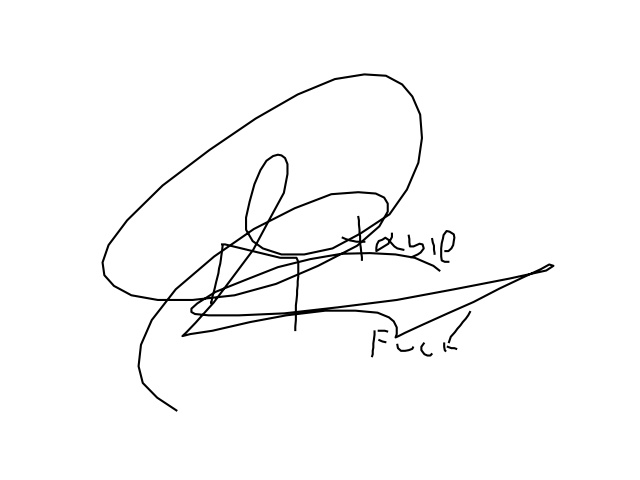 table
Fuck